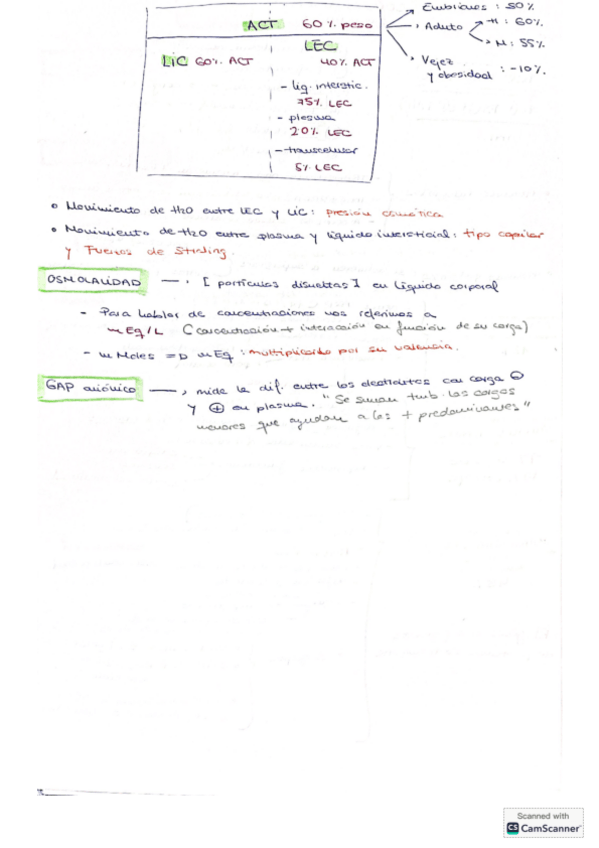 ACT 60% peso
Embriones : 50%
Aduto
H : 60%
M : 55%
Vejez
y obesidad : -10%
LIC 60% ACT
LEC
40% ACT
- liq. interstic.
75% LEC
- plasma
20% LEC
- transcelular
5% LEC
• Movimiento de H2O entre LEC y LIC: presión osmótica
• Movimiento de H2O entre plasma y líquido intersticial: tipo capilar
y Fuerzas de Starling.
OSMOLALIDAD → [partículas disueltas] en líquido corporal
- Para hablar de concentraciones nos referimos a
mEq/L (concentración + interacción en función de su carga)
- mMoles => mEq : multiplicando por su valencia.
GAP aniónico → mide la dif. entre los electrolitos con carga ⊖
y ⊕ en plasma. "Se suman tmb. las cargas
menores que ayudan a las + predominantes"
Scanned with
CS CamScanner